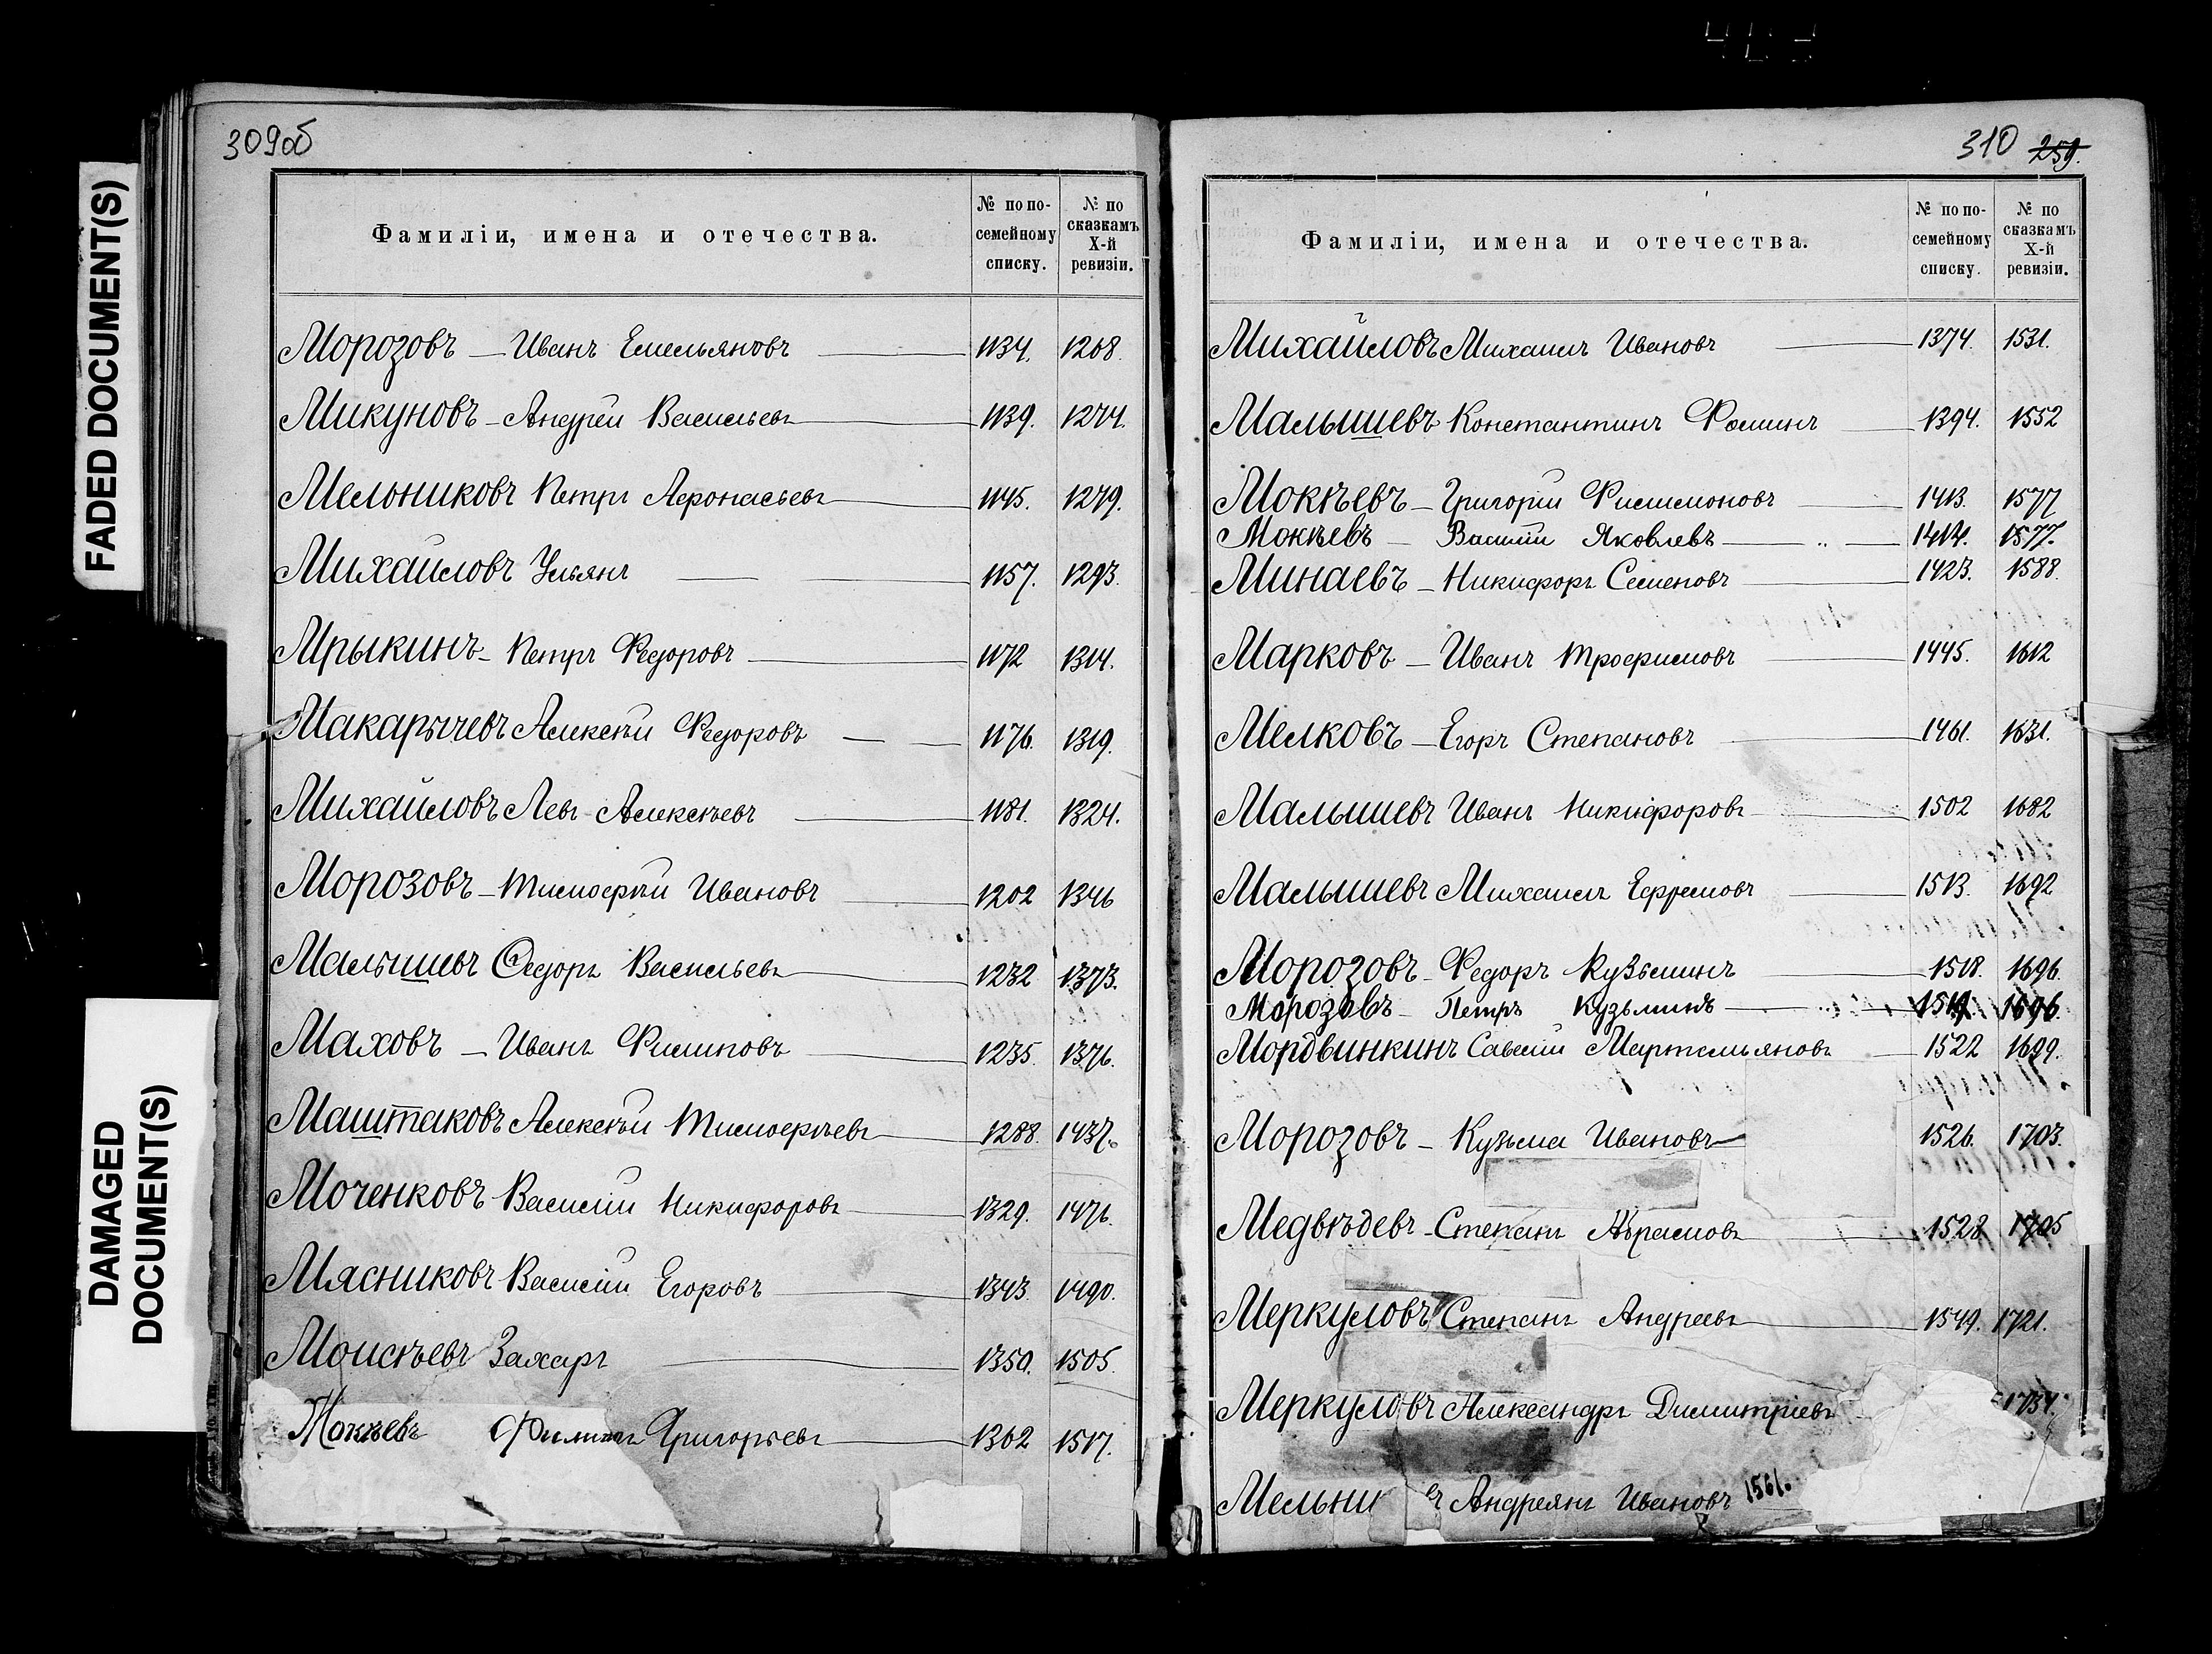 FADED DOCUMENT(S)
DAMAGED
DOCUMENT(S)
309об
Фамиліи, имена и отечества.
№ по по-
семейному
списку.
№ по
сказкамъ
X-й
ревизіи.
Морозовъ — Иванъ Емельяновъ 1134. 1268.
Микуновъ - Андрей Васильевъ 1139. 1274.
Мельниковъ Петръ Афонасьевъ 1145. 1279.
Михайловъ Ульянъ 1157. 1293.
Мрыкинъ - Петръ Федоровъ 1172 1314.
Макарычевъ Алексѣй Федоровъ 1176. 1319.
Михайловъ Левъ Алексѣевъ 1181. 1324.
Морозовъ - Тимофѣй Ивановъ 1202 1346
Малышевъ Федоръ Васильевъ 1232 1373.
Маховъ — Иванъ Филиповъ 1235. 1376.
Маштаковъ Алексѣй Тимофѣевъ 1288. 1437.
Моченковъ Василій Никифоровъ 1329. 1476.
Мясниковъ Василій Егоровъ 1343. 1490.
Моисѣевъ Захаръ 1350. 1505.
Мокѣевъ Филипъ Григорьевъ 1362 1517.
310 259.
Фамиліи, имена и отечества.
№ по по-
семейному
списку.
№ по
сказкамъ
X-й
ревизіи.
Михайловъ Михаилъ Ивановъ 1374. 1531.
Малышевъ Константинъ Фоминъ 1394. 1552
Мокѣевъ - Григорій Филимоновъ 1413. 1577
Мокѣевъ - Василій Яковлевъ 1414. 1577.
Минаевъ - Никифоръ Семеновъ 1423. 1588.
Марковъ - Иванъ Трофимовъ 1445. 1612
Мелковъ - Егоръ Степановъ 1461. 1631.
Малышевъ Иванъ Никифоровъ 1502 1682
Малышевъ Михаилъ Ефремовъ 1513. 1692
Морозовъ - Федоръ Кузьминъ 1518. 1696.
Морозовъ - Петръ Кузьминъ 1519. 1696.
Мордвинкинъ Савелій Мартемьяновъ 1522 1699.
Морозовъ - Кузьма Ивановъ 1526. 1703.
Медвѣдевъ - Степанъ Абрамовъ 1528 1705
Меркуловъ Степанъ Андреевъ 1549. 1721.
Меркуловъ Александръ Димитріевъ 1734.
Мельни въ Андреянъ Ивановъ 1561.